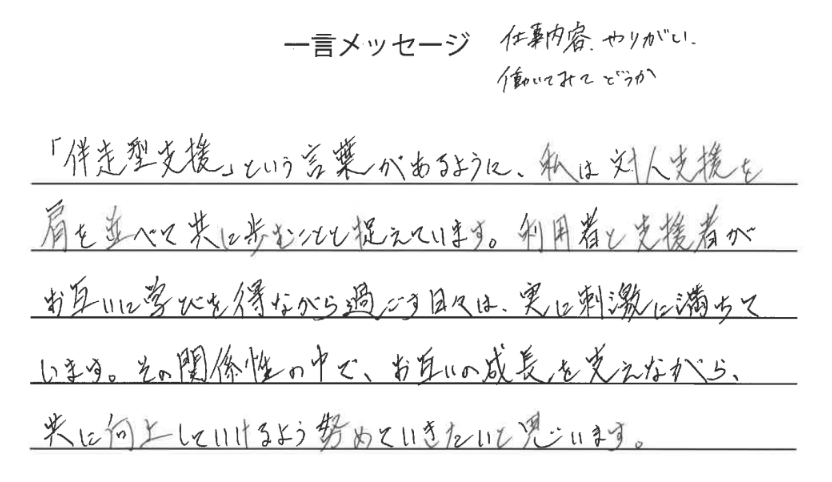 一言メッセージ 仕事内容、やりがい、
働いてみてどうか
「伴走型支援」という言葉があるように、私は対人支援を
肩を並べて共に歩むことと捉えています。利用者と支援者が
お互いに学びを得ながら過ごす日々は、実に刺激に満ちて
います。その関係性の中で、お互いの成長を支えながら、
共に向上していけるよう努めていきたいと思います。